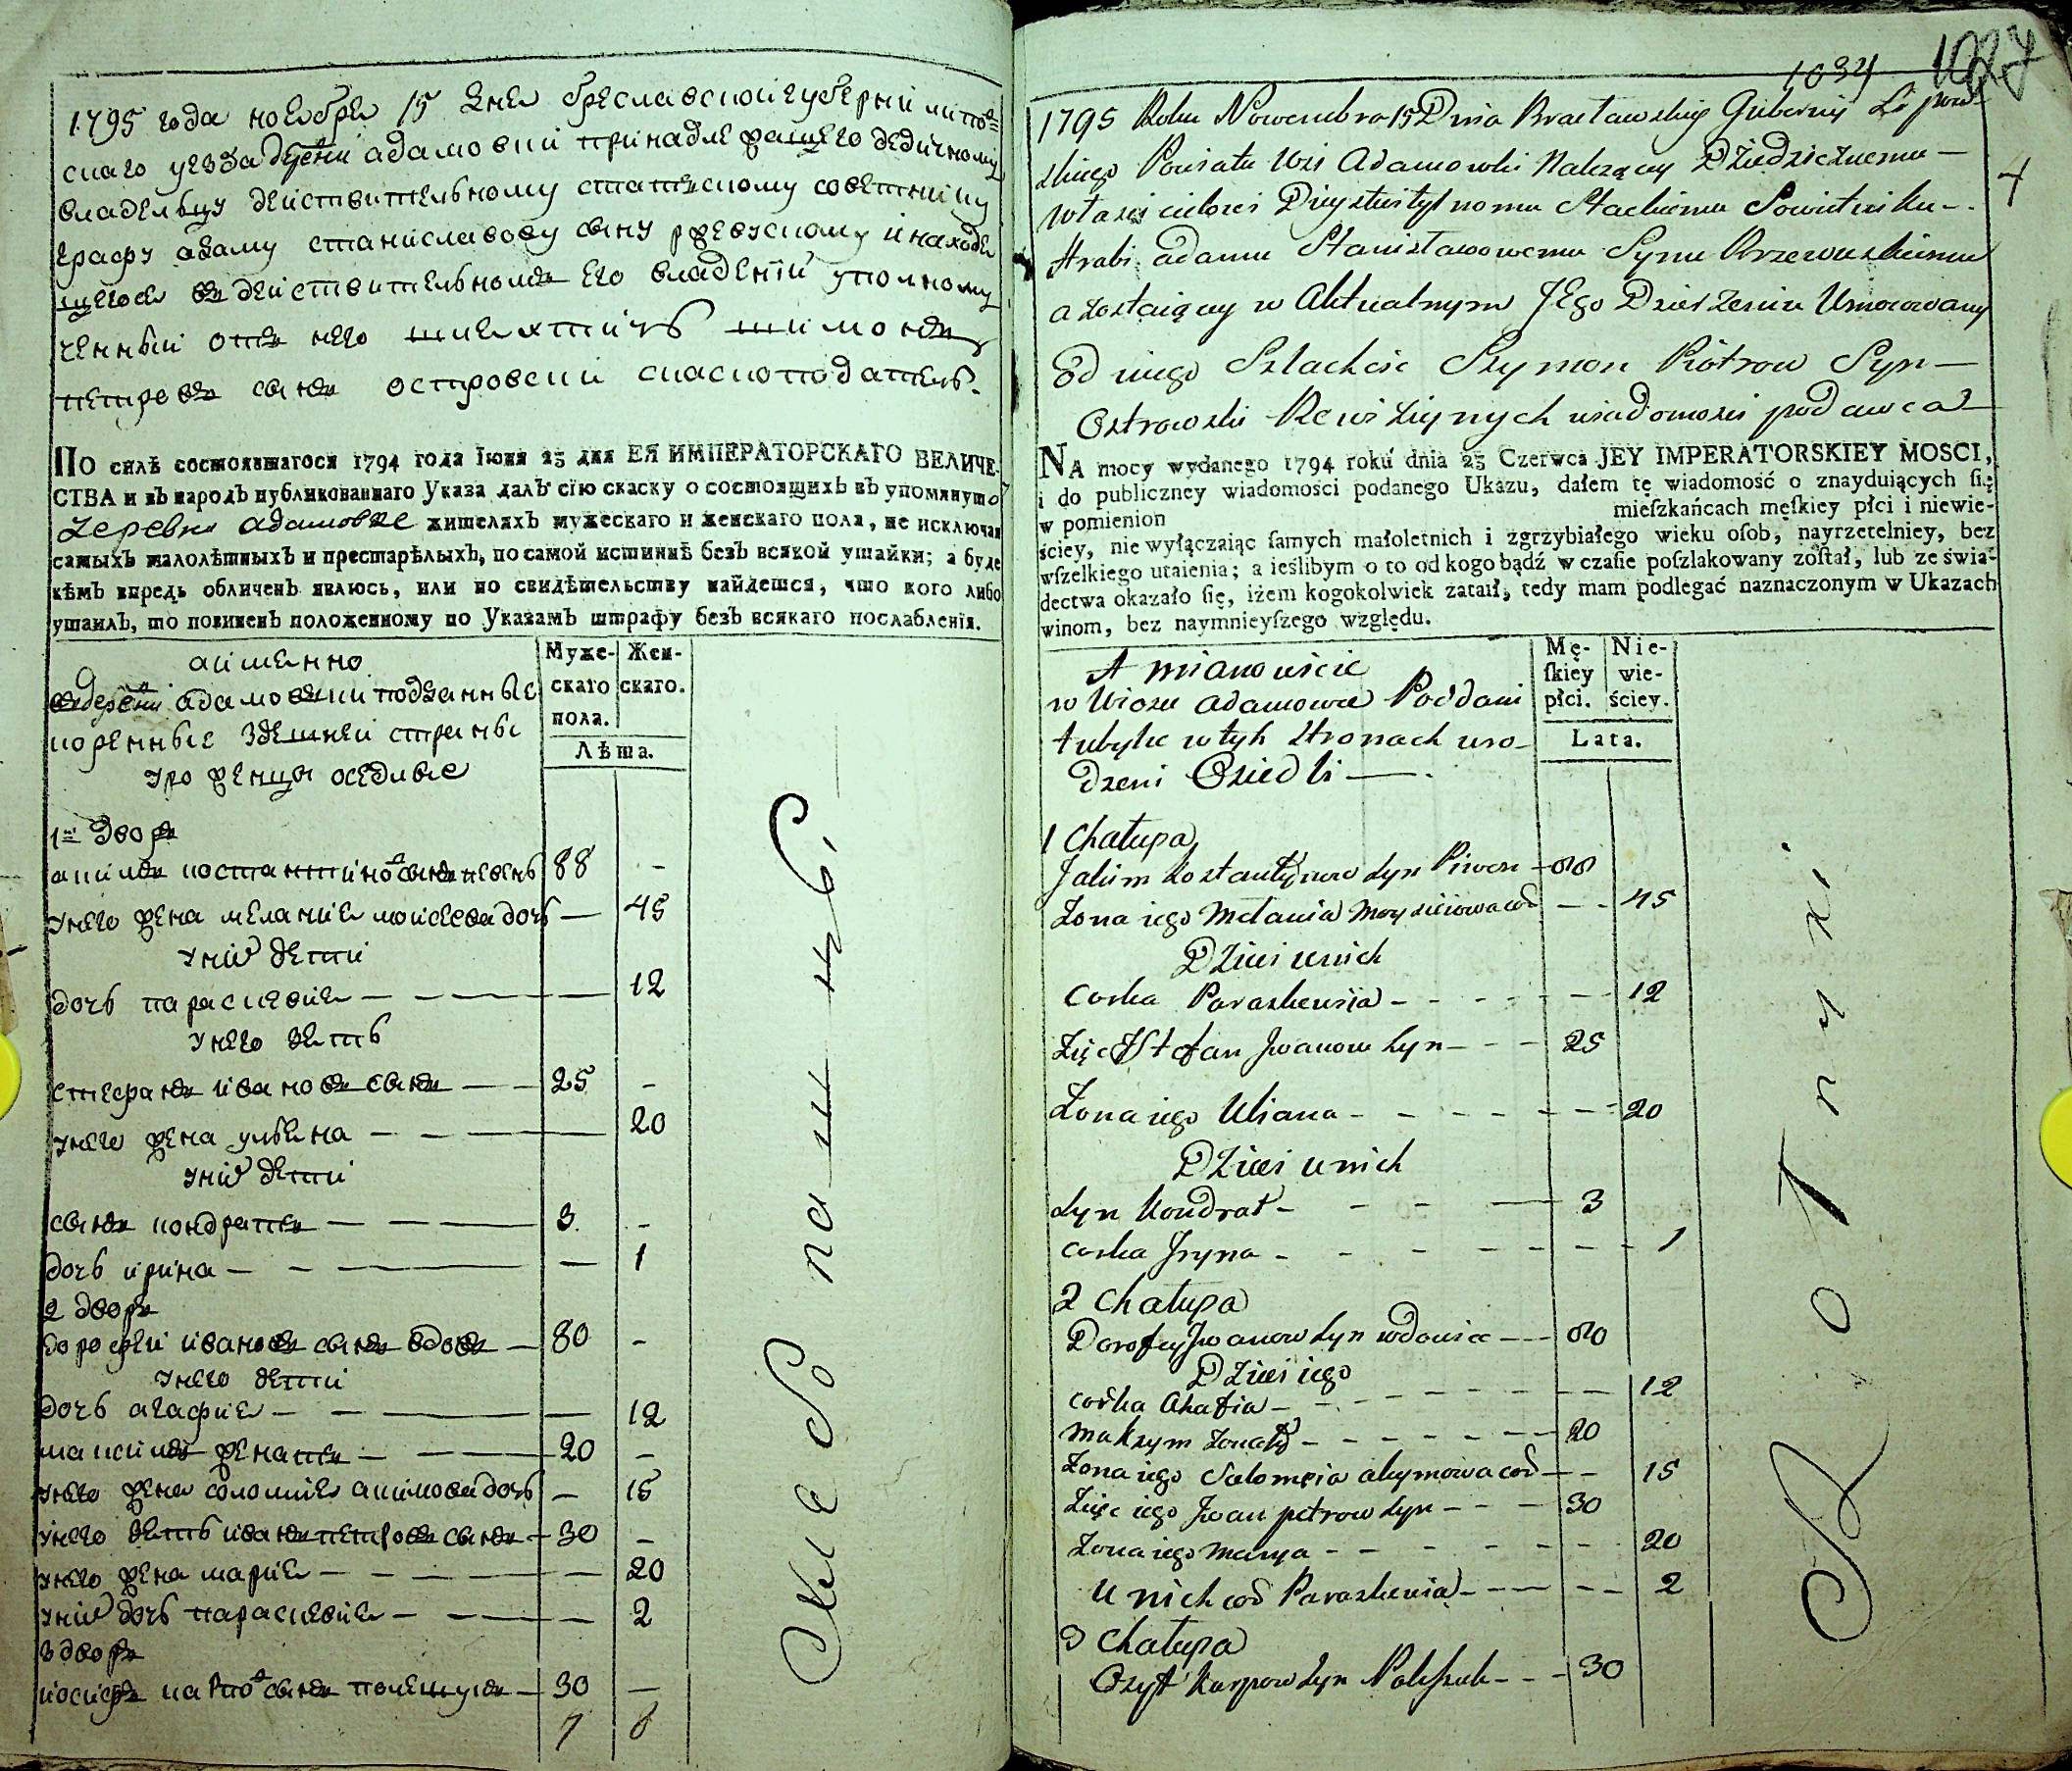 1795 года ноебре 15 дне Бреславской губернии липо=
скаго уезда дрвни адамовки принадлежащего дедичному
владельцу деиствительному статскому советнику
графу адаму станиславову сыну ржевускому и находе
щегосе въ деиствительномъ его владении уполномо
ченный отъ него шлехтичь шимонъ
петровъ сынъ островски скаскоподатель.
ПО силѣ состоявшагося 1794 года Іюня 23 дня ЕЯ ИМПЕРАТОРСКАГО ВЕЛИЧЕ-
СТВА и въ народъ публикованнаго Указа далъ сїю скаску о состоящихъ въ упомянуто
деревне адамовке жителяхъ мужескаго и женскаго пола, не исключая
самыхъ малолѣтныхъ и престарѣлыхъ, по самой истиннѣ безъ всякой утайки; а буде
кѣмъ впредь обличенъ явлюсь, или по свидѣтельству найдется, что кого либо
утаилъ, то повиненъ положенному по Указамъ штрафу безъ всякаго послабленїя.
Муже- Жен-
скаго скаго.
пола.
Лѣта.
аимено
въ дервни адамовки подданные
коренные здешней страны
уроженцы оседлые
1й дворъ
акимъ костантиновъ сынъ пивень 88 -
у него жена мелание моисеева дочь — 45
у них дети
дочь параскевие — — — 12
у него зеть
стефанъ ивановъ сынъ — — 25 -
у него жена ульена — — — 20
у них дети
сынъ кондратъ — — — 3 -
дочь ирина — — — 1
2 дворъ
дорофеи ивановъ сынъ вдовъ — 80 -
у него дети
дочь агафие — — — 12
максимъ женатъ — — 20 -
у него жена соломие акимова дочь — 15
у него зеть иванъ петровъ сынъ — 30 -
у него жена марие — — — 20
у них дочь параскевие — — — 2
3 дворъ
иосифъ карповъ сынъ полещукъ — 30 —
7 8
1034 1027
1795 Roku Nowembra 15 Dnia Bracławskiy Gubernij Lipow-
skiego Powiatu Wsi Adamowki Należący Dziedzicznemu —
właści cielowi Dieystwitylnomu Stackiemu Sowietniku —
Hrabi adamu Stanisławowemu Synu Rzewuskiemu
a zostaiący w Aktualnym JEgo Dzierżeniu Umocowany
od niego Szlachcic Szymon Piotrow Syn —
Ostrowski Rewizkiynych wiadomości podawca
NA mocy wydanego 1794 roku dnia 23 Czerwca JEY IMPERATORSKIEY MOSCI,
i do publiczney wiadomości podanego Ukazu, dałem tę wiadomość o znayduiących ſię
w pomienion mieſzkańcach męſkiey płci i niewie-
ściey, nie wyłączaiąc ſamych małoletnich i zgrzybiałego wieku oſob, nayrzetelniey, bez
wſzelkiego utaienia; a ieślibym o to od kogo bądź w czaſie poſzlakowany zoſtał, lub ze świa-
dectwa okazało ſię, iżem kogokolwiek zataił, tedy mam podlegać naznaczonym w Ukazach
winom, bez naymnieyſzego względu.
Mę- Nie-
ſkiey wie-
płci. ściey.
Lata.
A mianowicie
w Wiosce adamowce Poddani
tubylce w tyh stronach uro-
dzeni Osiedli —
1 Chałupa
Jakim Kostantynow syn Piwen — 88
Zona iego Melania Moysieiowa cor — — 45
Dzieci u nich
Corka Paraskewija — — 12
Zięc Stefan Jwanow syn — — 25
Zona iego Uliana — — — 20
Dzieci u nich
Syn Kondrat — — — 3
Corka Jryna — — — 1
2 Chałupa
Dorofey Jwanow syn wdowiec — 80
Dzieci iego
Corka Ahafia — — — 12
Maksym żonaty — — — 20
Zona iego Salomeia akymowa cor — — 15
Zięc iego Jwan petrow syn — — 30
Zona iego Marya — — — 20
U nich cor Paraskewia — — — 2
3 Chałupa
Ozyf Karpow syn Poleszuk — — 30